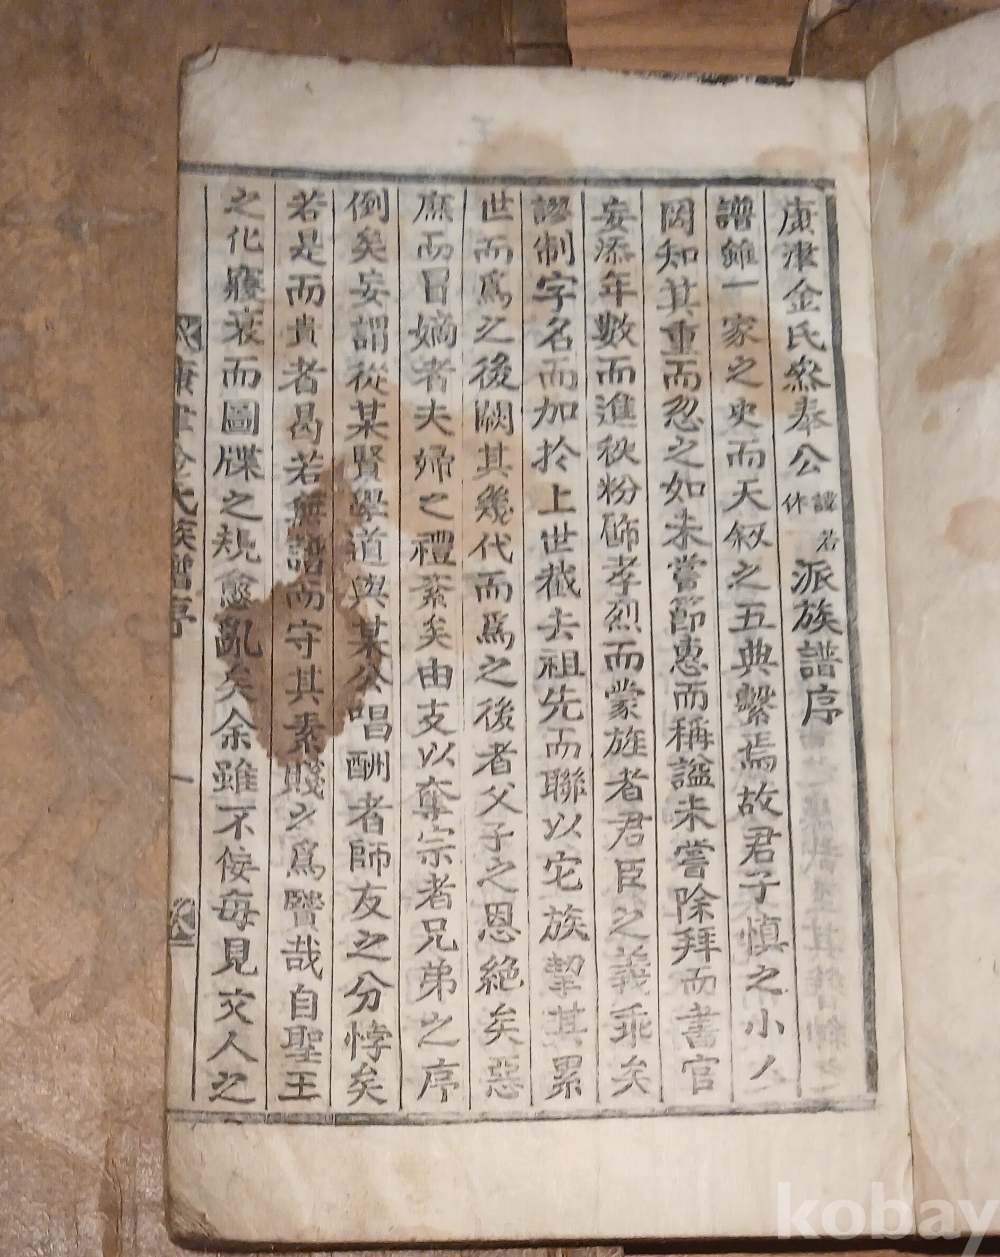 康津金氏叅奉公諱若休派族譜序
譜雖一家之史而天叙之五典繫焉故君子愼之小人
因知其重而忽之如未嘗節惠而稱諡未嘗除拜而書官
妄添年數而進秩粉飾孝烈而蒙旌者君臣之義乖矣
謬制字名而加於上世截去祖先而聯以它族挈其累
世而爲之後闕其幾代而爲之後者父子之恩絶矣惡
庶而冒嫡者夫婦之禮紊矣由支以奪宗者兄弟之序
倒矣妄謂從某賢學道與某公唱酬者師友之分悖矣
若是而貴者曷若無譜而守其素賤之爲賢哉自聖王
之化寢衰而圖牒之規愈亂矣余雖不佞每見文人之
康津金氏族譜序
一
kobay